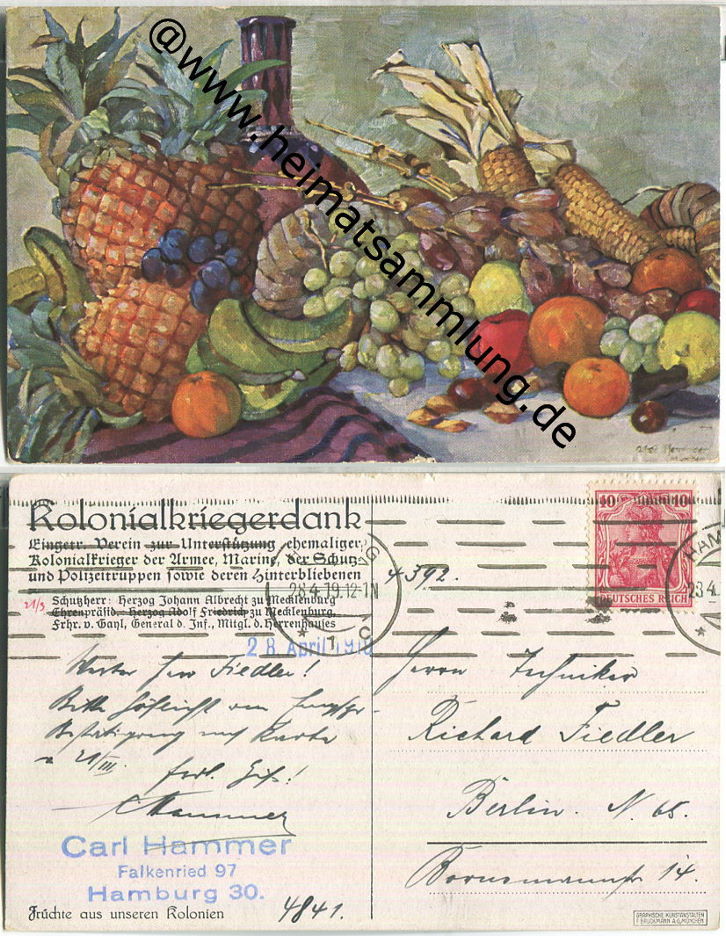 @www.heimatsammlung.de
Kolonialkriegerdank
Eingetr. Verein zur Unterstützung ehemaliger
Kolonialkrieger der Armee, Marine, der Schutz-
und Polizeitruppen sowie deren Hinterbliebenen
Schutzherr: Herzog Johann Albrecht zu Mecklenburg
Ehrenpräsid.: Herzog Adolf Friedrich zu Mecklenburg,
Frhr. v. Gayl, General d. Inf., Mitgl. d. Herrenhauses
21/3
4392.
10 10
DEUTSCHES REICH
28.4.19.12-1N
HAM
28.4
* 1 C
28. April 19
Werter Herr Fiedler!
Bitte höflichst um
Bestätigung auf Karte
v. 21/III.
Hammer
Carl Hammer
Falkenried 97
Hamburg 30.
Früchte aus unseren Kolonien
4841.
Herrn Techniker
Richard Fiedler
Berlin. N 65.
14.
GRAPHISCHE KUNSTANSTALTEN
F. BRUCKMANN A.G. MÜNCHEN